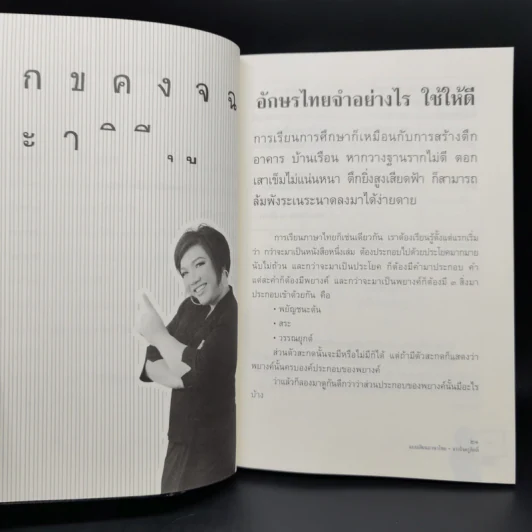 ก ข ค ง จ ฉ
ะ า ิ ี ุ ู
อักษรไทยจำอย่างไร ใช้ให้ดี
การเรียนการศึกษาก็เหมือนกับการสร้างตึก
อาคาร บ้านเรือน หากวางฐานรากไม่ดี ตอก
เสาเข็มไม่แน่นหนา ตึกยิ่งสูงเสียดฟ้า ก็สามารถ
ล้มพังระเนระนาดลงมาได้ง่ายดาย
การเรียนภาษาไทยก็เช่นเดียวกัน เราต้องเรียนรู้ตั้งแต่แรกเริ่ม
ว่า กว่าจะมาเป็นหนังสือหนึ่งเล่ม ต้องประกอบไปด้วยประโยคมากมาย
นับไม่ถ้วน และกว่าจะมาเป็นประโยค ก็ต้องมีคำมาประกอบ คำ
แต่ละคำก็ต้องมีพยางค์ และกว่าจะมาเป็นพยางค์ก็ต้องมี ๓ สิ่งมา
ประกอบเข้าด้วยกัน คือ
• พยัญชนะต้น
• สระ
• วรรณยุกต์
ส่วนตัวสะกดนั้นจะมีหรือไม่มีก็ได้ แต่ถ้ามีตัวสะกดก็แสดงว่า
พยางค์นั้นครบองค์ประกอบของพยางค์
ว่าแล้วก็ลองมาดูกันดีกว่าว่าส่วนประกอบของพยางค์นั้นมีอะไร
บ้าง